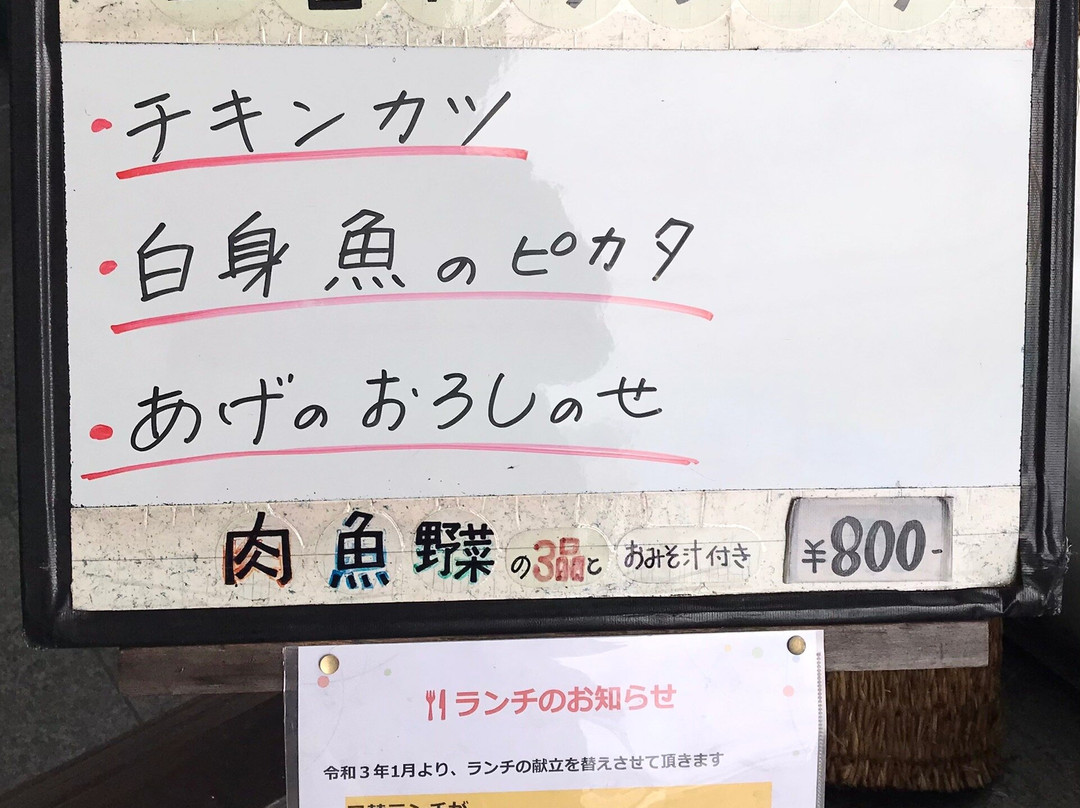 ・チキンカツ
・白身魚のピカタ
・あげのおろしのせ
肉 魚 野菜の3品と おみそ汁付き ¥800-
ランチのお知らせ
令和3年1月より、ランチの献立を替えさせて頂きます